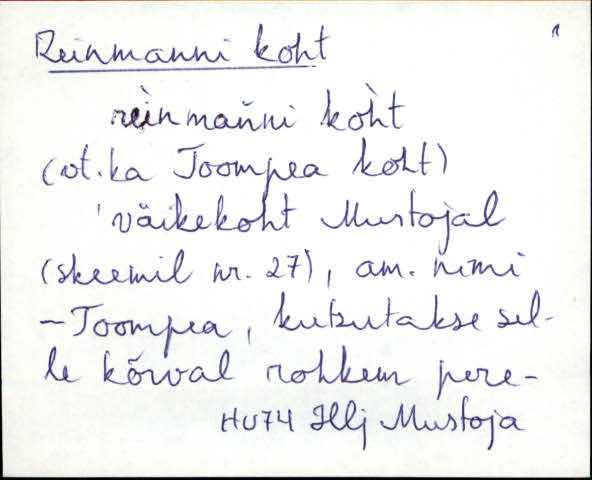 Reinmanni koht
1
rèinman̆ni kòht
(vt. ka Toompea koht)
'väikekoht Mustojal
(skeemil nr. 27), am. nimi
– Toompea, kutsutakse sel-
le kõrval rohkem pere-
HU74 Hlj Mustoja